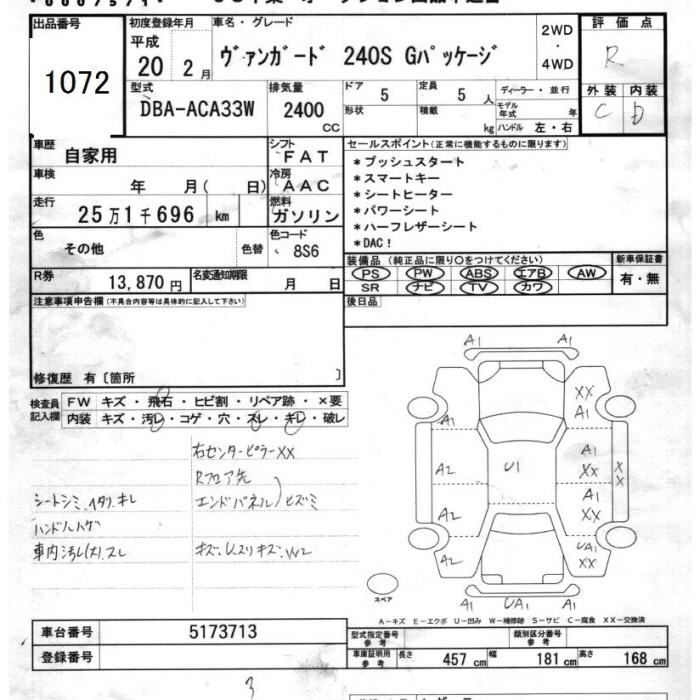 出品番号
1072
初度登録年月
平成
20 2月
車名・グレード
ヴァンガード 240S Gパッケージ
2WD
・
4WD
評価点
R
外装 内装
C D
型式
DBA-ACA33W
排気量
2400
CC
ドア
5
定員
5 人
形状
積載
kg
ディーラー・並行
モデル年式 年
ハンドル 左・右
車歴
自家用
シフト
FAT
車検
年 月( 日)
冷房
AAC
走行
25万1千696 km
燃料
ガソリン
色
その他
色替
色コード
8S6
R券
13,870円
名変通知期限
月 日
セールスポイント(正常に機能するものに限ります)
*プッシュスタート
*スマートキー
*シートヒーター
*パワーシート
*ハーフレザーシート
*DAC!
装備品(純正品に限り○をつけてください)
PS PW ABS エアB AW
SR ナビ TV カワ
新車保証書
有・無
後日品
注意事項申告欄(不具合内容等は具体的に記入して下さい)
修復歴 有〔箇所 〕
検査員記入欄
FW キズ・飛石・ヒビ割・リペア跡・×要
内装 キズ・汚レ・コゲ・穴・スレ・キレ・破レ
右センターピラーXX
Rフロア先
エンドパネル)ヒズミ
シートシミ.イタリ.キレ
ハンドルハゲ
車内汚レ(大).スレ
キズ.Uスリキズ.W2
A1 A1
XX
A1
A1
A1
XX
A2 U1
XX
A1
XX
A2
A2
UA1
XX
A1 UA1 A1
スペア
A-キズ E-エクボ U-凹み W-補修跡 S-サビ C-腐食 XX-交換済
車台番号
5173713
登録番号
型式指定番号
参考
類別区分番号
参考
車庫証明用
参考
長さ 457 cm 幅 181 cm 高さ 168 cm
3